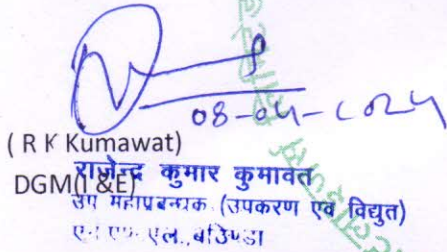 08-04-2024
( R K Kumawat)
राजेन्द्र कुमार कुमावत
DGM(I &E)
उप महाप्रबन्धक (उपकरण एवं विद्युत)
एन.एफ.एल., बठिण्डा